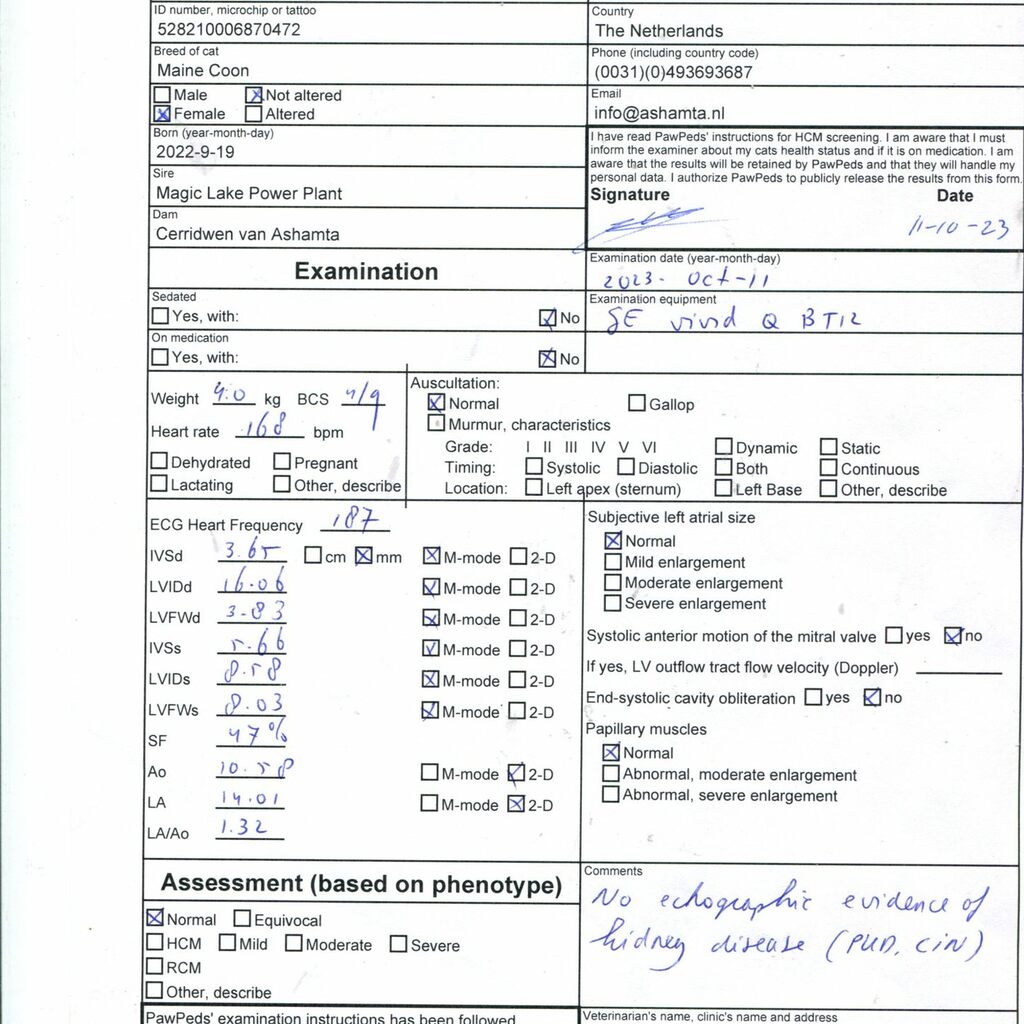 ID number, microchip or tattoo
528210006870472
Country
The Netherlands
Breed of cat
Maine Coon
Phone (including country code)
(0031)(0)493693687
Male Not altered
Female Altered
Email
info@ashamta.nl
Born (year-month-day)
2022-9-19
I have read PawPeds' instructions for HCM screening. I am aware that I must
inform the examiner about my cats health status and if it is on medication. I am
aware that the results will be retained by PawPeds and that they will handle my
personal data. I authorize PawPeds to publicly release the results from this form.
Sire
Magic Lake Power Plant
Signature Date
11-10-23
Dam
Cerridwen van Ashamta
Examination
Examination date (year-month-day)
2023- Oct-11
Sedated
Yes, with: No
Examination equipment
GE vivid Q BT12
On medication
Yes, with: No
Weight 4.0 kg BCS 4/9
Heart rate 168 bpm
Dehydrated Pregnant
Lactating Other, describe
Auscultation:
Normal Gallop
Murmur, characteristics
Grade: I II III IV V VI Dynamic Static
Timing: Systolic Diastolic Both Continuous
Location: Left apex (sternum) Left Base Other, describe
ECG Heart Frequency 187
IVSd 3.65 cm mm M-mode 2-D
LVIDd 16.06 M-mode 2-D
LVFWd 3-83 M-mode 2-D
IVSs 5.66 M-mode 2-D
LVIDs 8.58 M-mode 2-D
LVFWs 8.03 M-mode 2-D
SF 47%
Ao 10.58 M-mode 2-D
LA 14.01 M-mode 2-D
LA/Ao 1.32
Subjective left atrial size
Normal
Mild enlargement
Moderate enlargement
Severe enlargement
Systolic anterior motion of the mitral valve yes no
If yes, LV outflow tract flow velocity (Doppler)
End-systolic cavity obliteration yes no
Papillary muscles
Normal
Abnormal, moderate enlargement
Abnormal, severe enlargement
Assessment (based on phenotype)
Normal Equivocal
HCM Mild Moderate Severe
RCM
Other, describe
Comments
No echographic evidence of
kidney disease (PKD, CIN)
PawPeds' examination instructions has been followed
Veterinarian's name, clinic's name and address